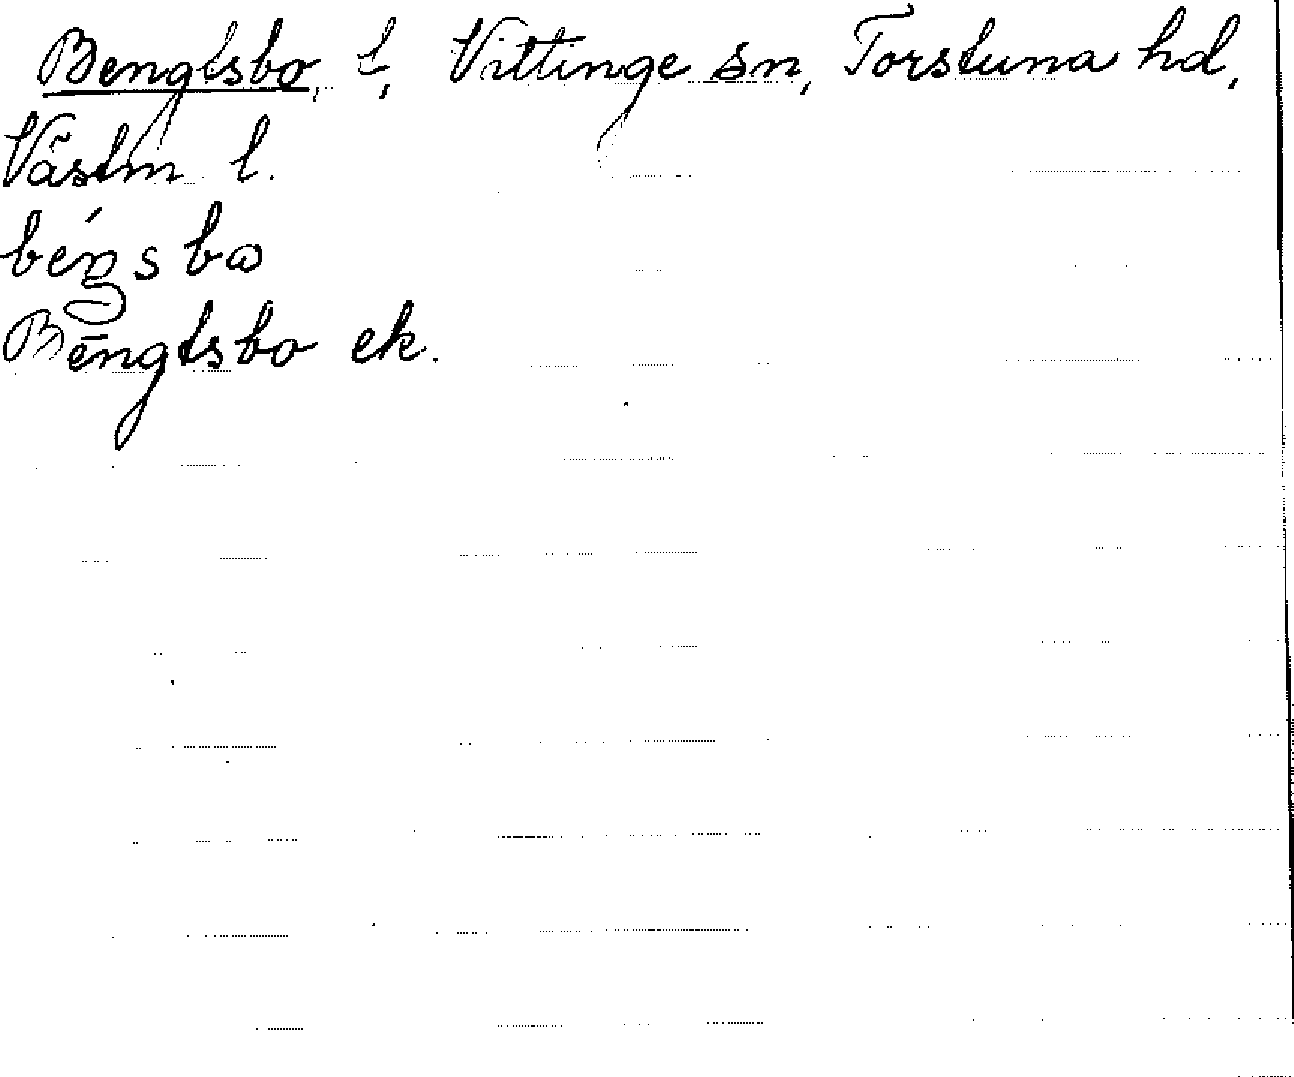 Bengtsbo, t, Vittinge sn, Torstuna hd,
Västm l.
Bengtsbo ek.